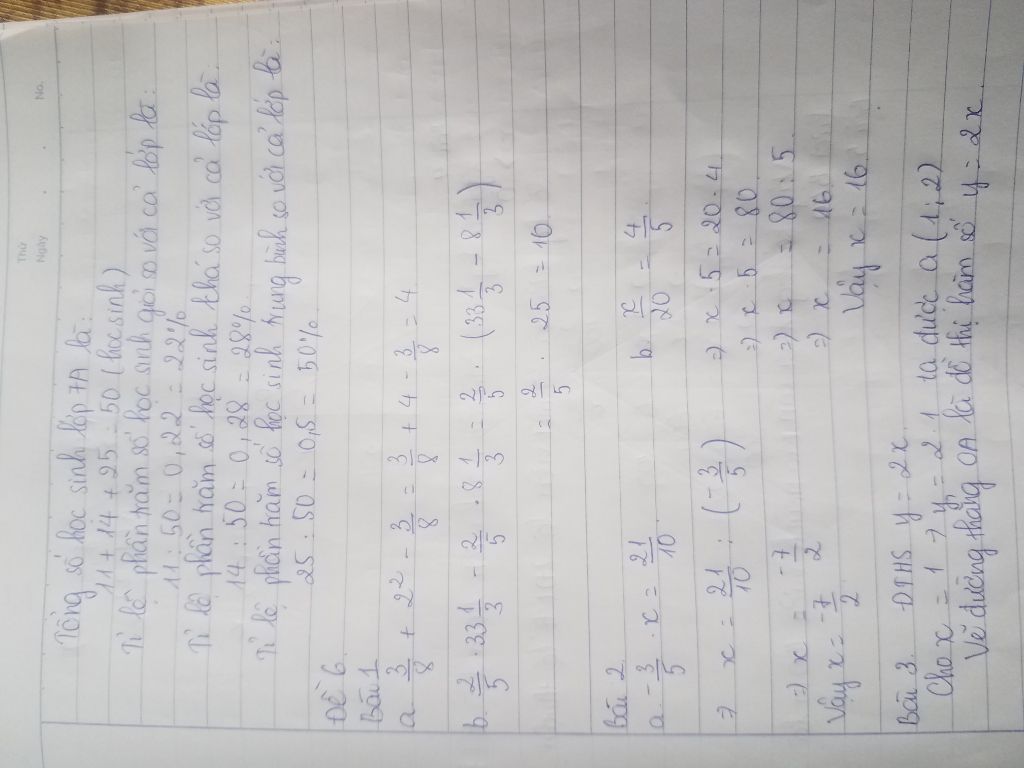 Thứ
Ngày
No.
Tổng số học sinh lớp 7A là:
11 + 14 + 25 = 50 (học sinh)
Tỉ lệ phần trăm số học sinh giỏi so với cả lớp là:
11 : 50 = 0,22 = 22%
Tỉ lệ phần trăm số học sinh khá so với cả lớp là:
14 : 50 = 0,28 = 28%
Tỉ lệ phần trăm số học sinh trung bình so với cả lớp là:
25 : 50 = 0,5 = 50%
Đề 6
Bài 1
a. 3/8 + 2² - 3/8 = 3/8 + 4 - 3/8 = 4
b. 2/5 . 33 1/3 - 2/5 . 8 1/3 = 2/5 . (33 1/3 - 8 1/3)
= 2/5 . 25 = 10
Bài 2
a. -3/5 . x = 21/10
⇒ x = 21/10 : (-3/5)
⇒ x = -7/2
Vậy x = -7/2
b. x/20 = 4/5
⇒ x . 5 = 20 . 4
⇒ x . 5 = 80
⇒ x = 80 : 5
⇒ x = 16
Vậy x = 16
Bài 3. DTHS y = 2x
Cho x = 1 ⇒ y = 2 . 1 ta được a (1; 2)
Vẽ đường thẳng OA là đồ thị hàm số y = 2x